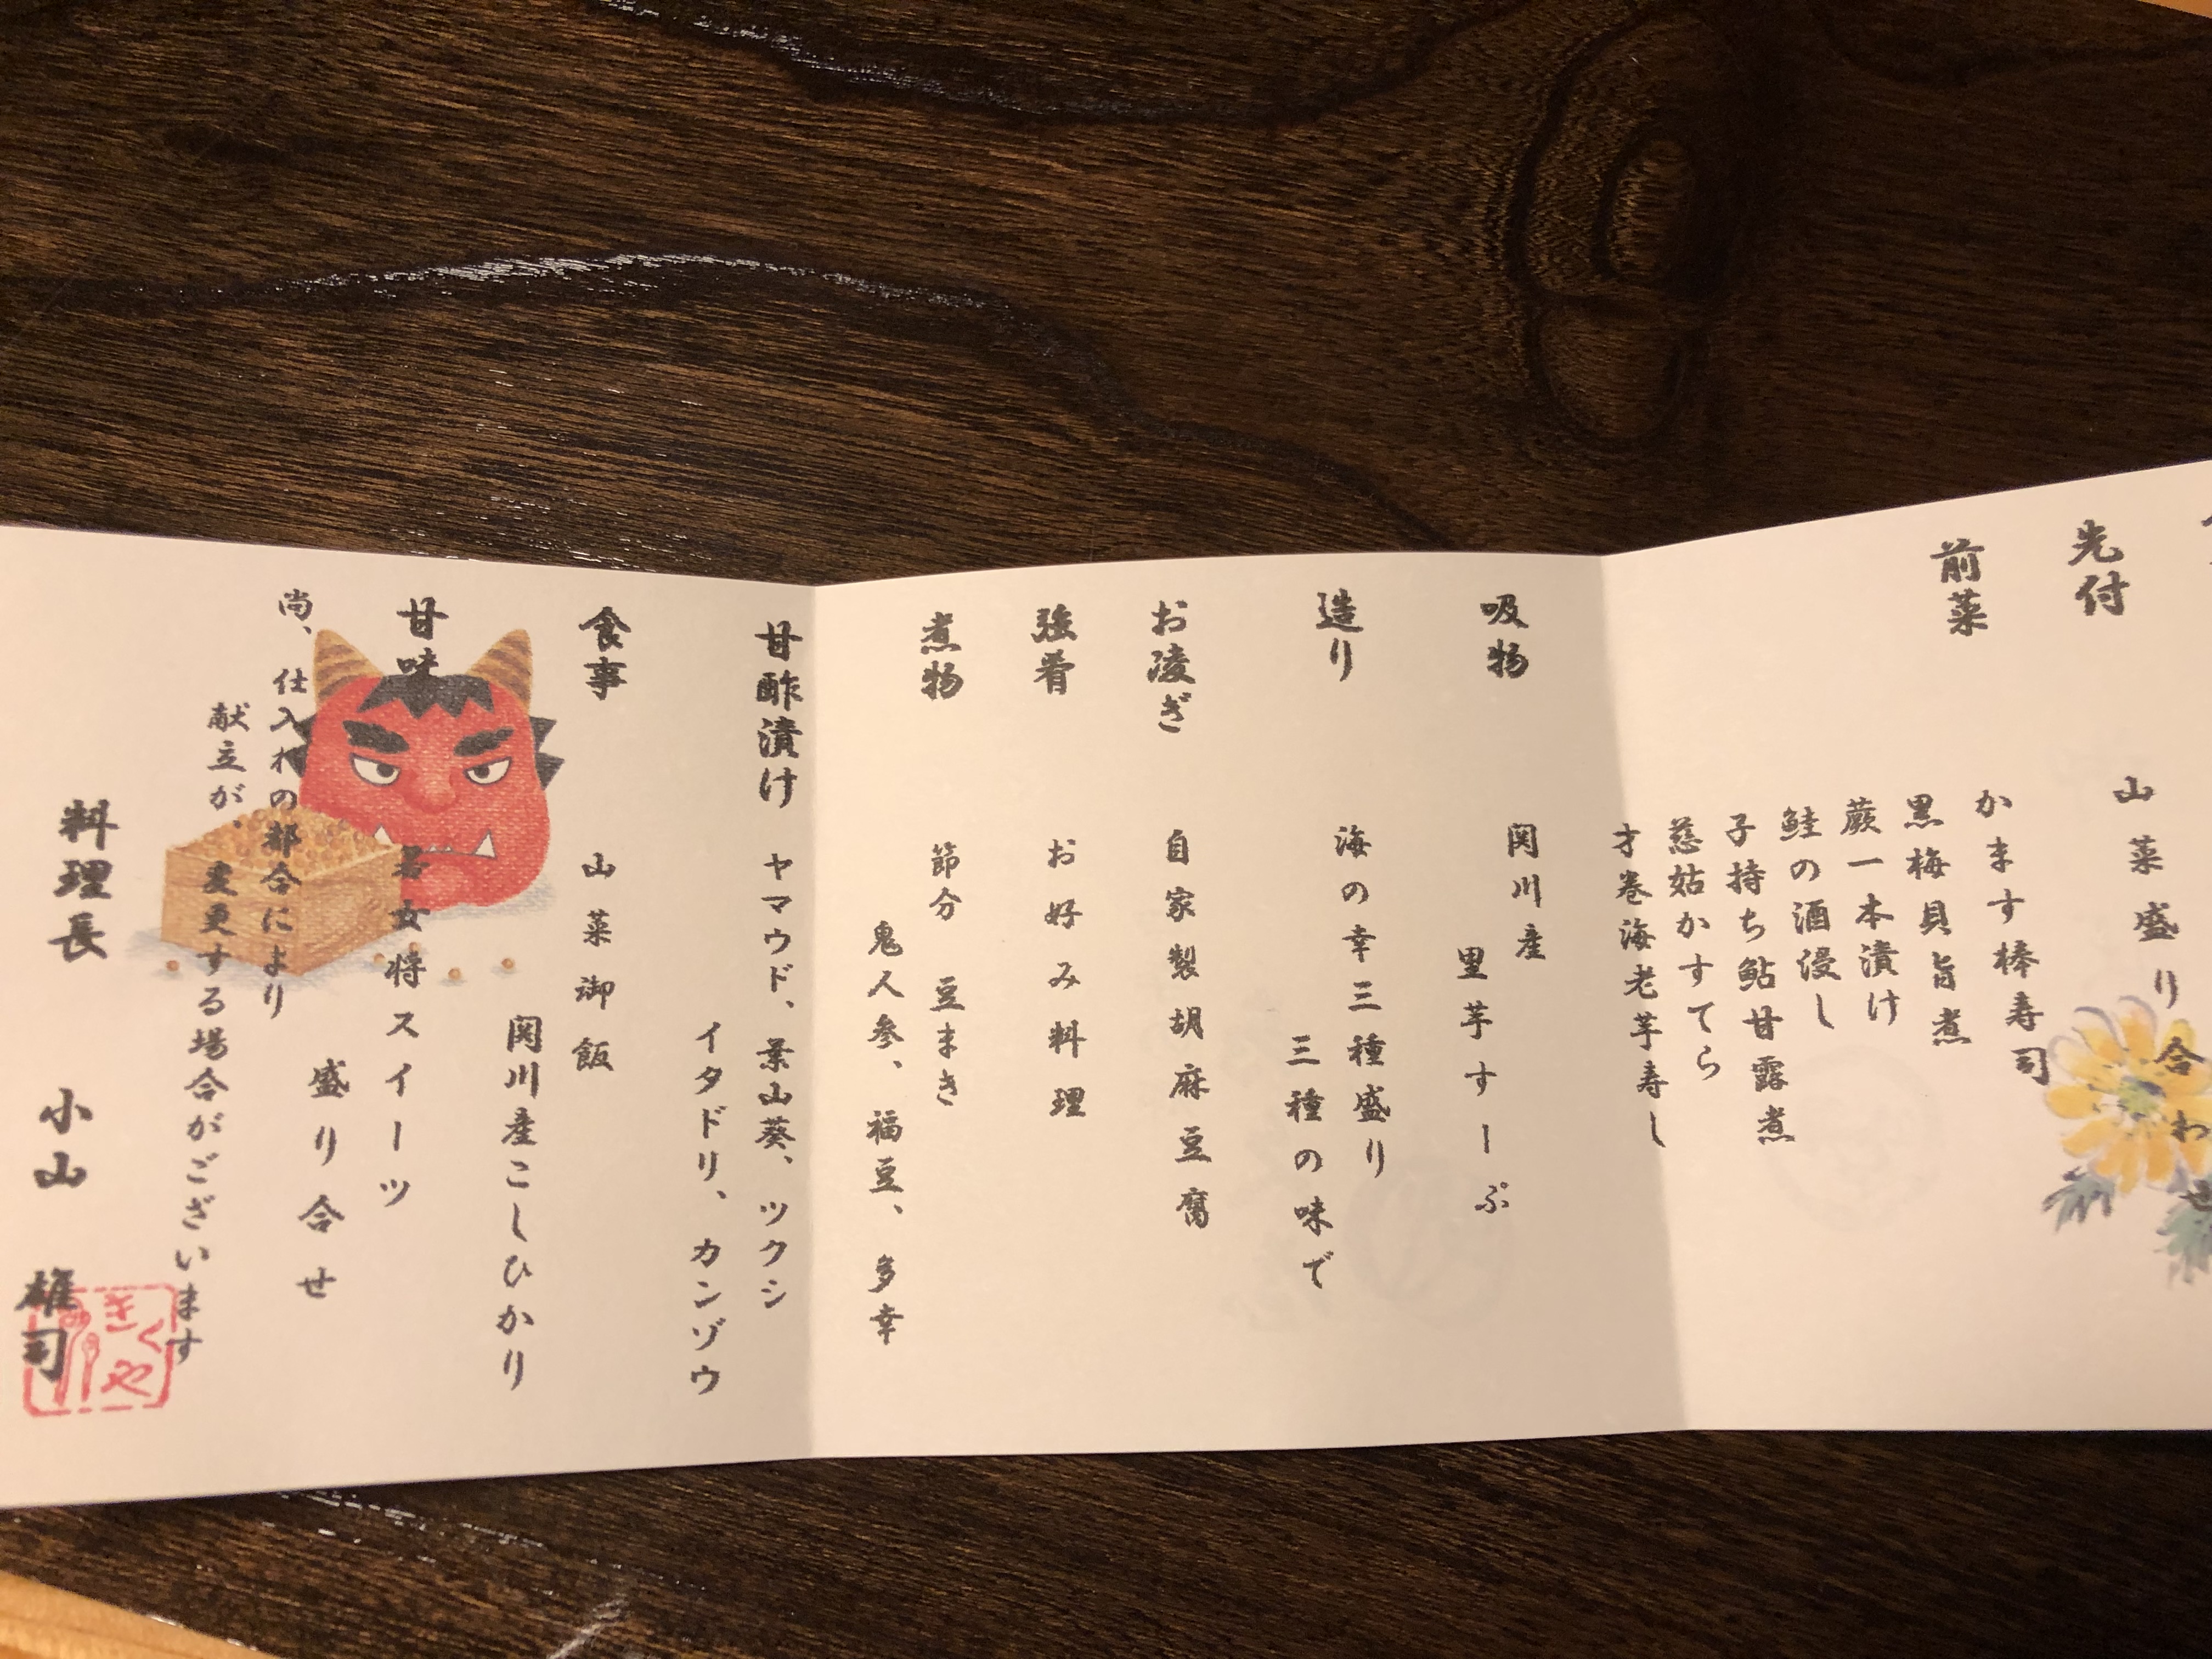 先付
山菜盛り合わせ
前菜
かます棒寿司
黒梅貝旨煮
蕨一本漬け
鮭の酒浸し
子持ち鮎甘露煮
慈姑かすてら
才巻海老芋寿し
吸物
関川産
里芋すーぷ
造り
海の幸三種盛り
三種の味で
お凌ぎ
自家製胡麻豆腐
強肴
お好み料理
煮物
節分 豆まき
鬼人参、福豆、多幸
甘酢漬け
ヤマウド、葉山葵、ツクシ
イタドリ、カンゾウ
食事
山菜御飯
関川産こしひかり
甘味
若女将スイーツ
盛り合せ
尚、仕入れの都合により
献立が、変更する場合がございます
料理長 小山 雄司
きくや